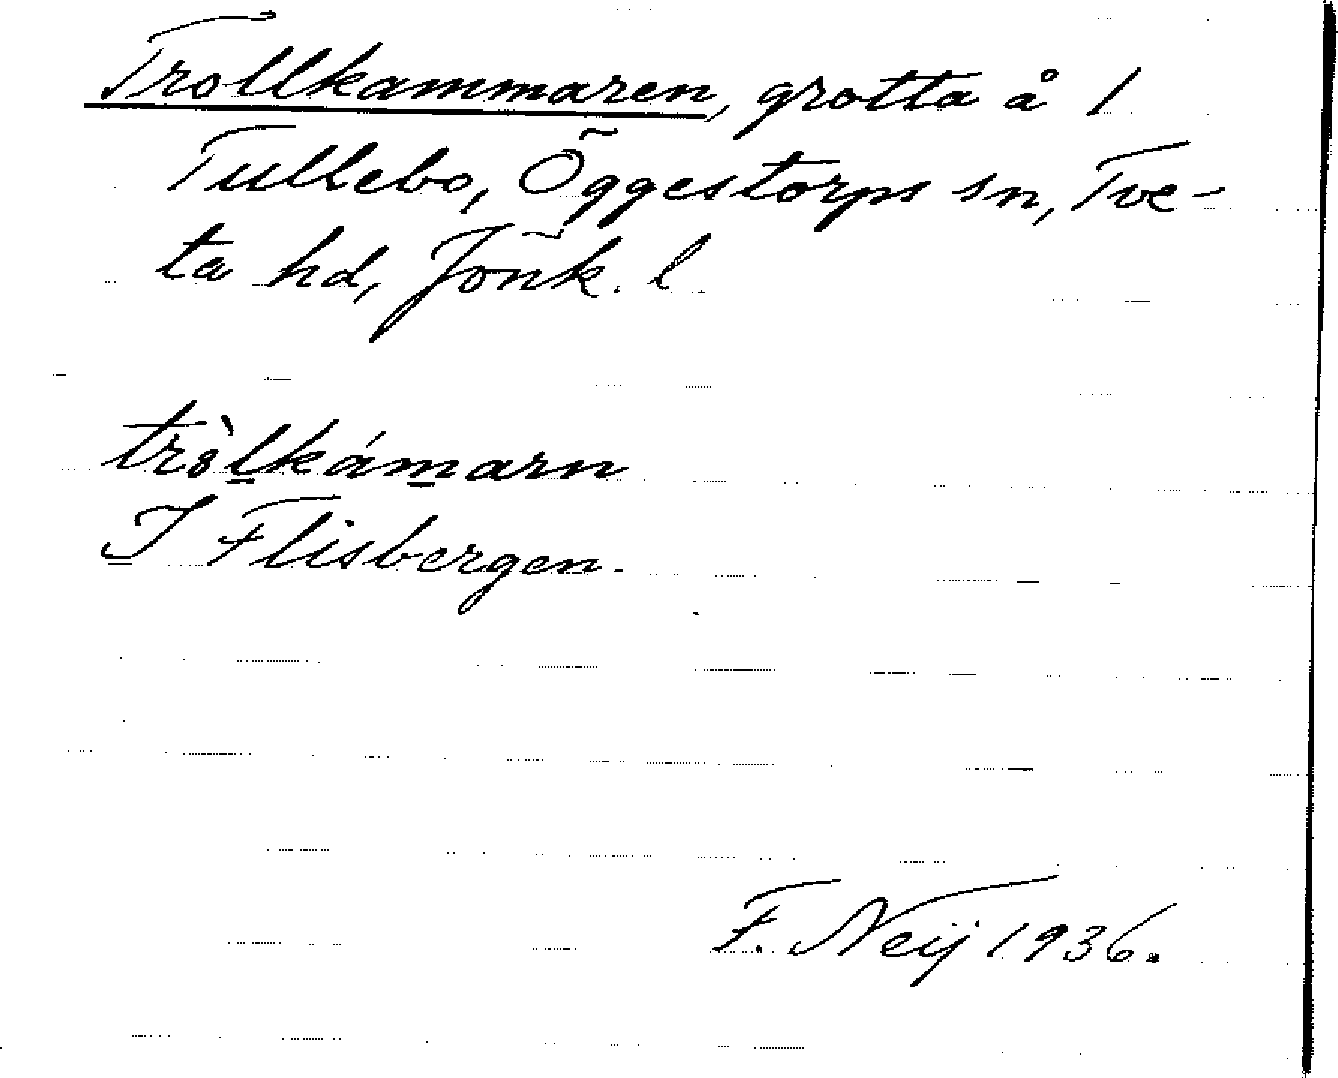 Trollkammaren, grotta å 1
Tullebo, Öggestorps sn, Tve-
ta hd, Jönk. l.
tròlkámarn
I Flisbergen.
F. Neij 1936.